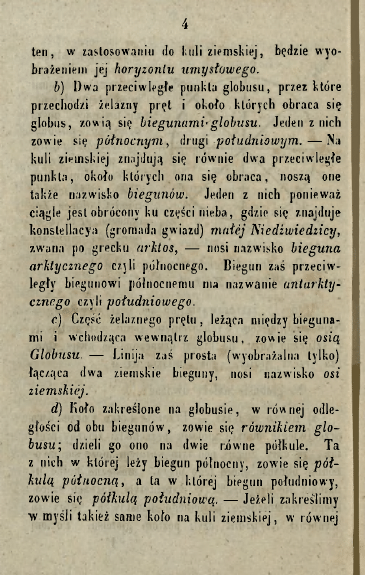 4
ten, w zastosowaniu do kuli ziemskiej, będzie wyo-
brażeniem jej horyzontu umysłowego.
b) Dwa przeciwległe punkta globusu, przez które
przechodzi żelazny pręt i około których obraca się
globus, zowią się biegunami globusu. Jeden z nich
zowie się północnym, drugi południowym. — Na
kuli ziemskiej znajdują się równie dwa przeciwległe
punkta, około których ona się obraca, noszą one
także nazwisko biegunów. Jeden z nich ponieważ
ciągle jest obrócony ku części nieba, gdzie się znajduje
konstellacya (gromada gwiazd) małéj Niedźwiedzicy,
zwana po grecku arktos, — nosi nazwisko bieguna
arktycznego czyli północnego. Biegun zaś przeciw-
legły biegunowi północnemu ma nazwanie antarkty-
cznego czyli południowego.
c) Część żelaznego prętu, leżąca między bieguna-
mi i wchodząca wewnątrz globusu, zowie się osią
Globusu. — Linija zaś prosta (wyobrażalna tylko)
łącząca dwa ziemskie bieguny, nosi nazwisko osi
ziemskiéj.
d) Koło zakreślone na globusie, w równej odle-
głości od obu biegunów, zowie się równikiem glo-
busu; dzieli go ono na dwie równe półkule. Ta
z nich w której leży biegun północny, zowie się pół-
kulą północną, a ta w której biegun południowy,
zowie się półkulą południową. — Jeżeli zakreślimy
w myśli takież same koło na kuli ziemskiej, w równej